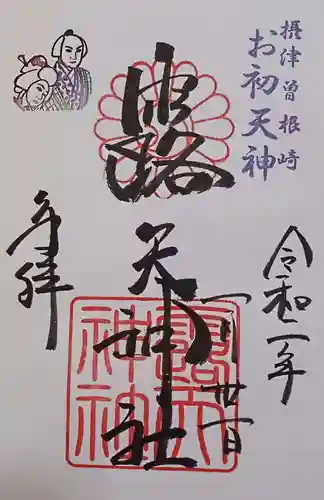 摂津曽根崎
お初天神
令和二年
一月廿一日
露
天神社
奉拝
露天神社